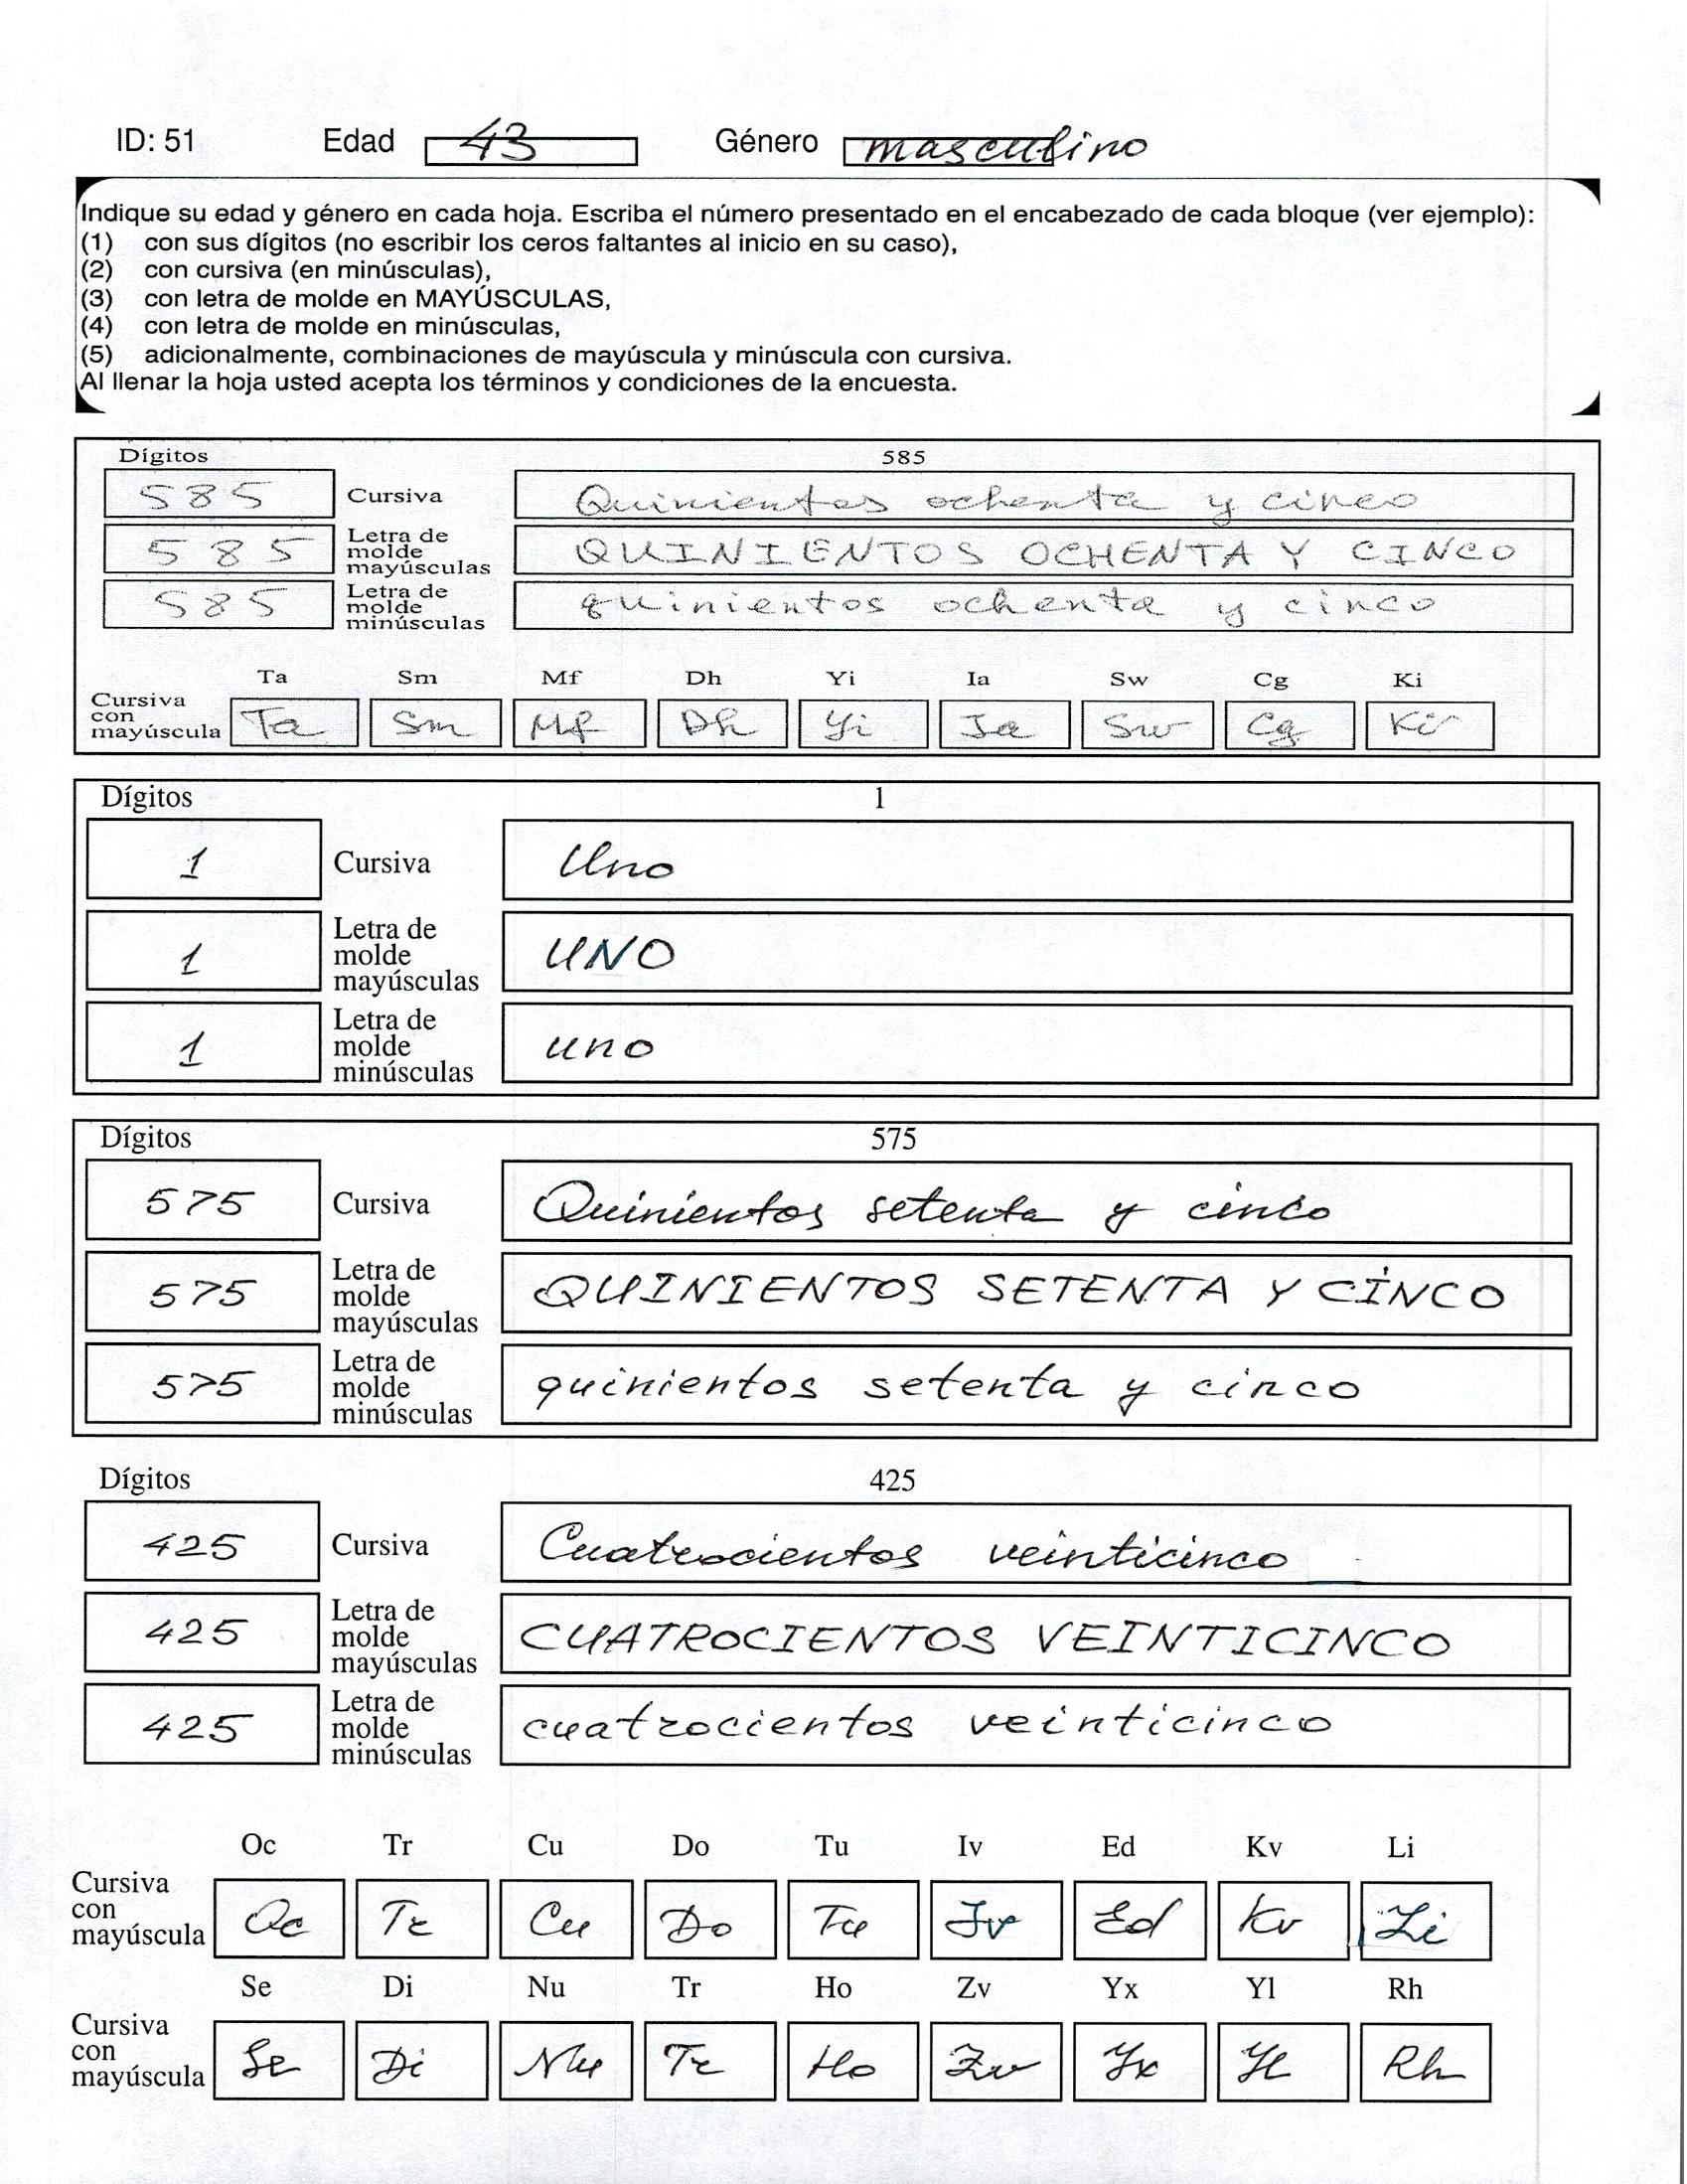 ID: 51 Edad 43 Género masculino
Indique su edad y género en cada hoja. Escriba el número presentado en el encabezado de cada bloque (ver ejemplo):
(1) con sus dígitos (no escribir los ceros faltantes al inicio en su caso),
(2) con cursiva (en minúsculas),
(3) con letra de molde en MAYÚSCULAS,
(4) con letra de molde en minúsculas,
(5) adicionalmente, combinaciones de mayúscula y minúscula con cursiva.
Al llenar la hoja usted acepta los términos y condiciones de la encuesta.
Dígitos 585
585 Cursiva Quinientos ochenta y cinco
585 Letra de molde mayúsculas QUINIENTOS OCHENTA Y CINCO
585 Letra de molde minúsculas quinientos ochenta y cinco
Ta Sm Mf Dh Yi Ia Sw Cg Ki
Cursiva con mayúscula Ta Sm Mf Dh Yi Ia Sw Cg Ki
Dígitos 1
1 Cursiva Uno
1 Letra de molde mayúsculas UNO
1 Letra de molde minúsculas uno
Dígitos 575
575 Cursiva Quinientos setenta y cinco
575 Letra de molde mayúsculas QUINIENTOS SETENTA Y CINCO
575 Letra de molde minúsculas quinientos setenta y cinco
Dígitos 425
425 Cursiva Cuatrocientos veinticinco
425 Letra de molde mayúsculas CUATROCIENTOS VEINTICINCO
425 Letra de molde minúsculas cuatrocientos veinticinco
Oc Tr Cu Do Tu Iv Ed Kv Li
Cursiva con mayúscula Oc Tr Cu Do Tu Iv Ed Kv Li
Se Di Nu Tr Ho Zv Yx Yl Rh
Cursiva con mayúscula Se Di Nu Tr Ho Zv Yx Yl Rh